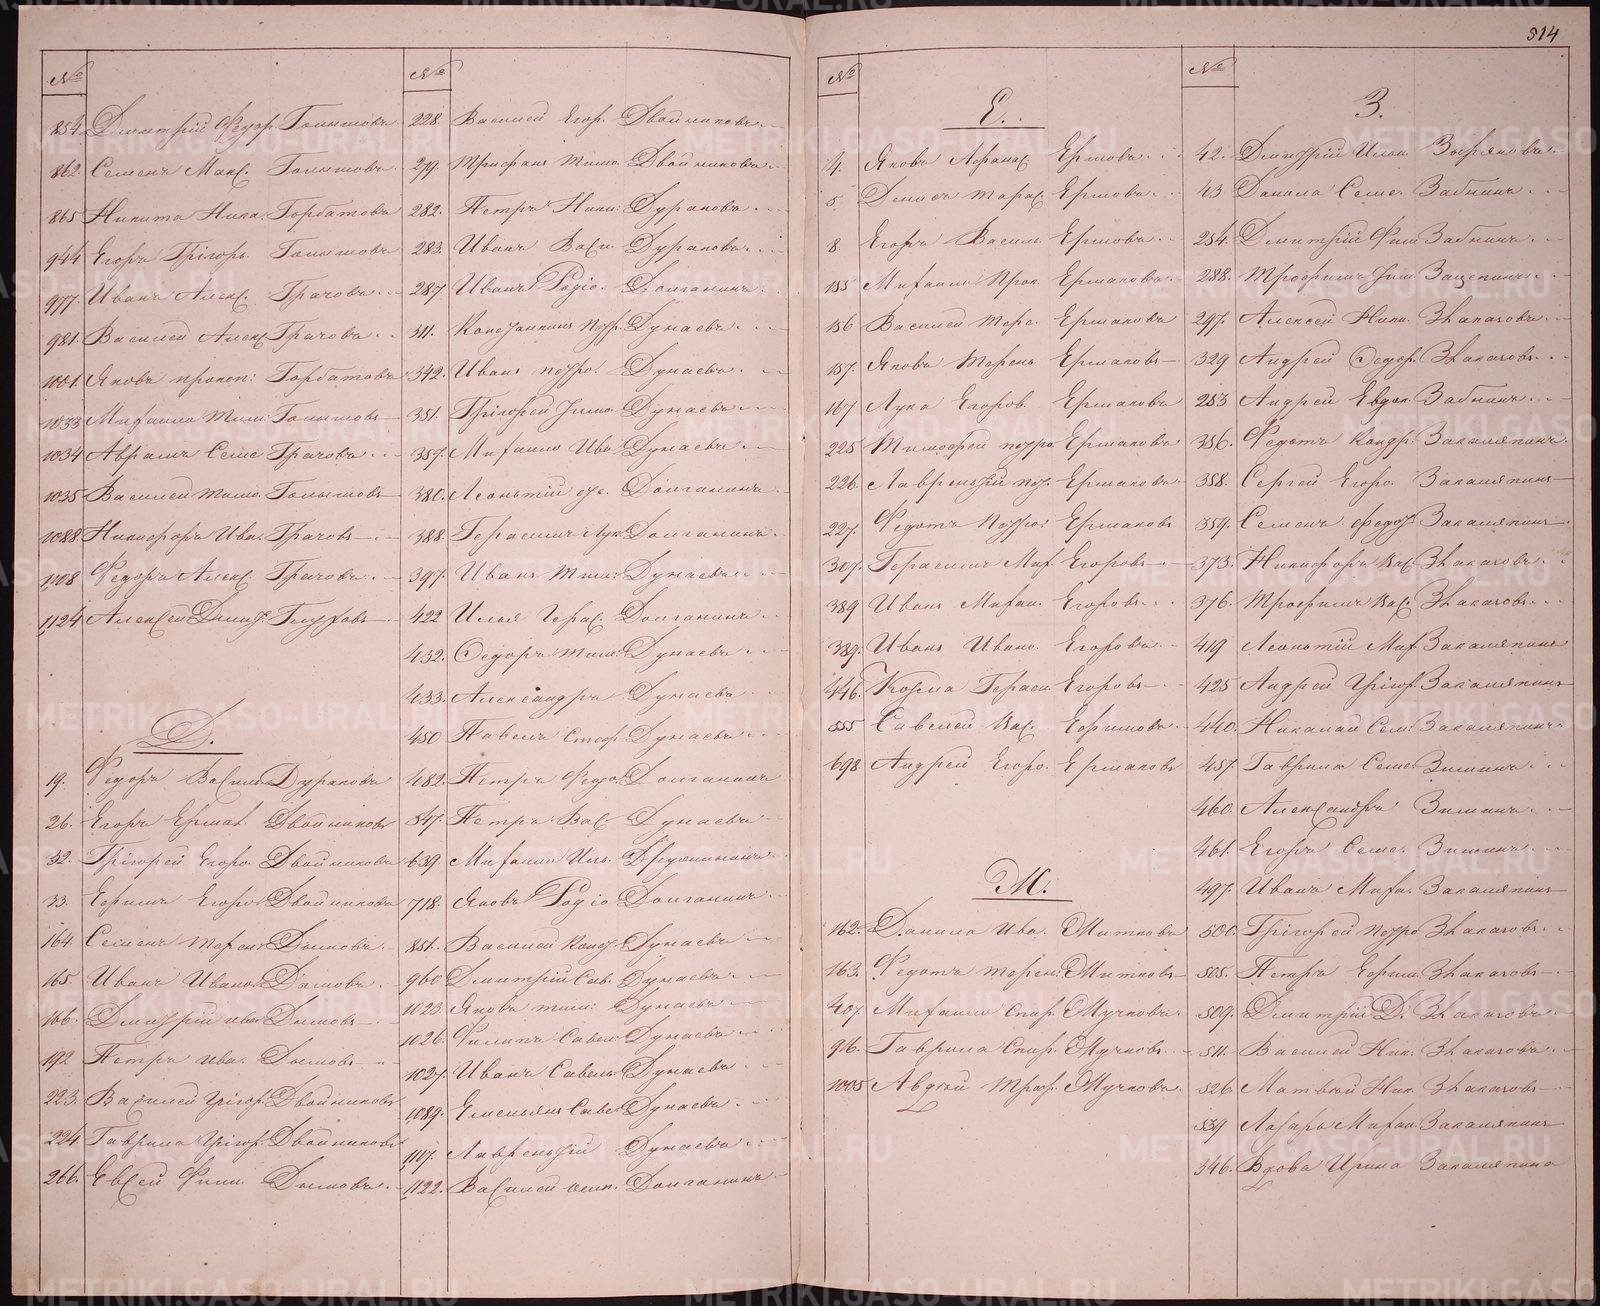 514
№
854. Дмитрій Федор. Голышовъ
862. Семенъ Макс. Голышовъ
865 Никита Ника. Горбатовъ
944 Егоръ Грігорь. Голышовъ
977. Иванъ Алекс. Грачовъ
981. Василей Алекс. Грачовъ
1001. Яковъ прокоп: Горбатовъ
1033 Михаило Тим: Голышовъ
1034 Аврамъ Семе Грачовъ
1035 Василей тимо. Голышовъ
1088. Никифоръ Ива. Грачовъ
1108 Федоръ Алекс. Грачовъ
1124 Алексей Дмит. Глуховъ
Д.
19. Федоръ Василь Дураковъ
26. Егоръ Ермол. Двойниковъ
32. Грігорей Егоро. Двойниковъ
33. Ефимъ Егоро Двойниковъ
164. Семенъ терент Дымовъ
165. Иванъ Ивано. Дымовъ
166. Дмитрій ива Дымовъ
192 Петръ ива. Дымовъ
223. Василей грігор. Двойниковъ
224 Гаврила грігор. Двойниковъ
266. Евсей Фили. Дымовъ
№
228. Василей Егор. Двойниковъ
279. Трифанъ тимо. Двойниковъ
282. Петръ Ники: Дураковъ
283. Иванъ Васи. Дураковъ
287 Иванъ Родіо. Долганинъ
311. Констанкинъ петр. Дунаевъ
342. Иванъ петро. Дунаевъ
351. Грігорей тимо Дунаевъ
359. Михаило Ива Дунаевъ
380. Леонтій Долганинъ
388. Герасимъ лук: Долганинъ
397. Иванъ тим: Дунаевъ
422 Илья Герас. Долганинъ
432. Федоръ тим: Дунаевъ
433. Александръ Дунаевъ
450 Павелъ Стеф. Дунаевъ
482. Петръ Федо. Долганинъ
547. Петръ Вас. Дунаевъ
639. Михаило Иль. Дружининъ
718. Яковъ Родіо Долганинъ
851. Василей Конд. Дунаевъ
960 Дмитрій Сав. Дунаевъ
1023. Яковъ тим: Дунаевъ
1026. Филипъ Савел Дунаевъ
1027. Иванъ Савель Дунаевъ
1089. Емельянъ Саве Дунаевъ
1117. Лаврентій Дунаевъ
1122. Василей Долганинъ
№
Е.
4. Яковъ Афанас Ершовъ
5. Денисъ тарас. Ершовъ
8 Егоръ Васил. Ершовъ
155 Михаило прок Ермаковъ
156 Василей тере. Ермаковъ
157. Яковъ терень Ермаковъ
167 Лука Егоров. Ермаковъ
225 Тимофей петро Ермаковъ
226. Лаврентій пет. Ермаковъ
227. Федотъ петро: Ермаковъ
307. Герасимъ Мих. Егоровъ
389 Иванъ Михаи. Егоровъ
389. Иванъ Ивано. Егоровъ
446. Козма Гераси Егоровъ
555 Савелей Вас. Ефимовъ
698. Андрей Егоро. Ермаковъ
М.
162. Данило Ива. Митковъ
163. Федотъ терен: Митковъ
407. Михаило Спир. Мучковъ
916. Гаврила Спир. Мучковъ
1005 Авдей троф. Мучковъ
№
З.
42. Дмитрій Илои. Зыряновъ
43 Данила Семе. Забнинъ
254. Дмитрій Фил Забнинъ
288. Трофимъ тим. Защепинъ
297. Алексей Ники. Зкаковъ
329 Андрей Федор. Зкаковъ
253 Андрей Евдок. Забнинъ
356. Федотъ Кондр. Закаляпинъ
358. Сергей Егоро. Закаляпинъ
359. Семенъ федот. Закаляпинъ
373. Никифоръ Вас. Зкаковъ
376. Трофимъ Вас. Зкаковъ
419 Леонтій Мих. Закаляпинъ
425 Андрей грігор. Закаляпинъ
440. Николай Сем: Закаляпинъ
457. Гаврила Семе Зиминъ
460. Александръ Зиминъ
461. Егоръ Семе. Зиминъ
497. Иванъ Миха. Закаляпинъ
500. Грігорей петро Зкаковъ
505. Петръ Ефим. Зкаковъ
509. Дмитрій Д. Зкаковъ
511. Василей Ник. Зкаковъ
526. Матвей Ник. Зкаковъ
539 Лазарь Михаи Закаляпинъ
346. Вдова Ирина Закаляпина
METRIKI.GASO-URAL.RU